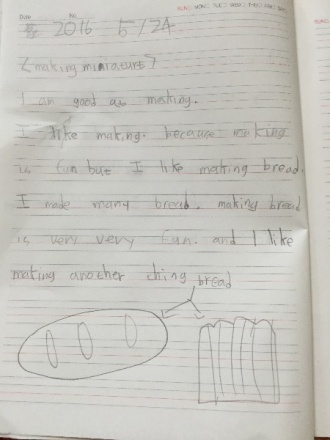 DATE NO.
SUN○ MON○ TUE○ WED○ THU○ FRI○ SAT○
2016 5/24
<making miniature>
I am good at making.
I like making. because making
is fun but I like making bread.
I made many bread. making bread
is very very fun. and I like
making another thing
bread